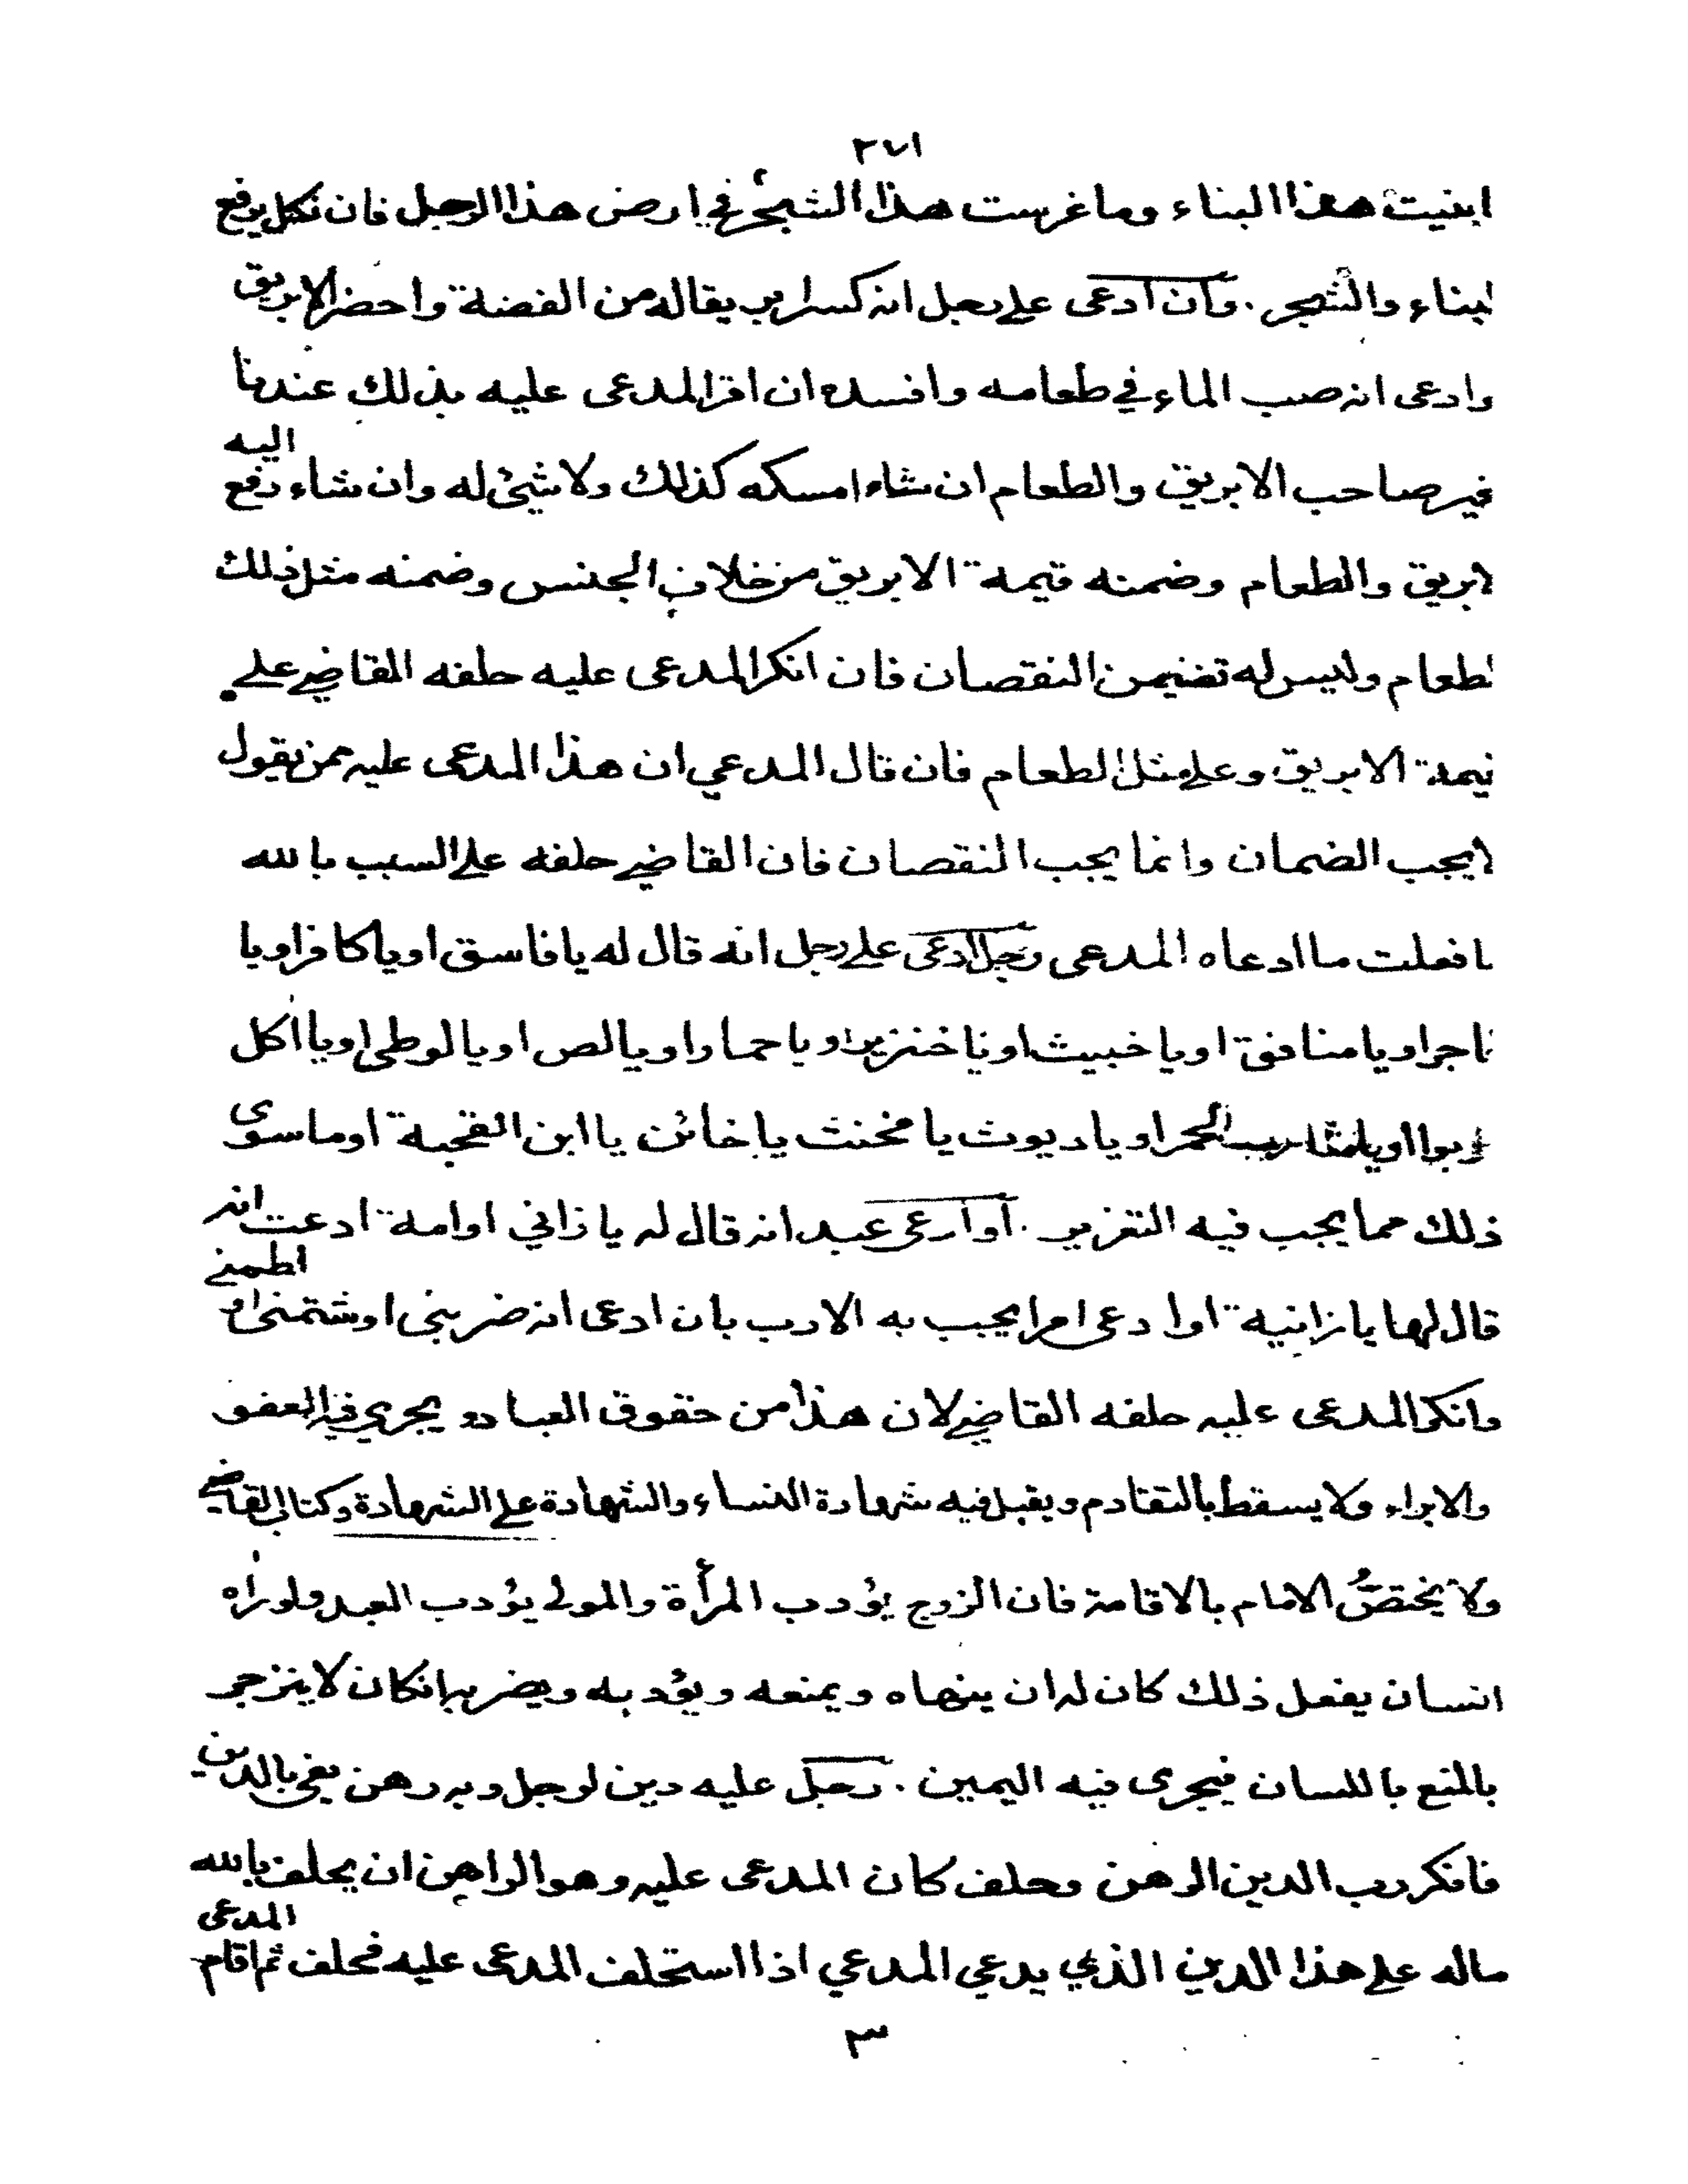 ٢٧١
ابنيت هذا البناء وما غرست هذا الشجر في ارض هذا الرجل فان نكل يرفع
لبناء والشجر . وان ادعى على رجل انه كسر ابريقا له من الفضة واحضر الابريق
وادعى انه صب الماء في طعامه وافسده ان اقر المدعى عليه بذلك عندنا
خير صاحب الابريق والطعام ان شاء امسكه كذلك ولا شئ له وان شاء دفع اليه
لابريق والطعام وضمنه قيمة الابريق من خلاف الجنس وضمنه مثل ذلك
لطعام وليس له تضمين النقصان فان انكر المدعى عليه حلفه القاضي على
قيمة الابريق وعلى مثل الطعام فان قال المدعي ان هذا المدعى عليه ممن يقول
لايجب الضمان وانما يجب النقصان فان القاضي حلفه على السبب بالله
ما فعلت ما ادعاه المدعى رجل ادعى على رجل انه قال له يا فاسق او يا كافر او يا
فاجر او يا منافق او يا خبيث او يا خنزير او يا حمار او يا لص او يا لوطى او يا اكل
ربوا او يا شارب الخمر او يا ديوث يا مخنث يا خائن يا ابن القحبة او ما سوى
ذلك مما يجب فيه التعزير . او ادعى عبد انه قال له يا زاني او امة ادعت انه
قال لها يا زانية او ادعى امرا يجب به الادب بان ادعى انه ضربنى او شتمنى او لطمني
وانكر المدعى عليه حلفه القاضي لان هذا من حقوق العباد و يجري فيه العفو
والابراء ولا يسقط بالتقادم ويقبل فيه شهادة النساء والشهادة على الشهادة وكتاب القاضي
ولا يختص الامام بالاقامة فان الزوج يؤدب المرأة والمولى يؤدب العبد ولو راه
انسان يفعل ذلك كان له ان ينهاه ويمنعه ويؤدبه ويضربه انكان لاينزجر
بالمنع باللسان فيجرى فيه اليمين . رجل عليه دين لرجل وبه رهن يفي بالدين
فانكر رب الدين الرهن وحلف كان المدعى عليه وهو الراهن ان يحلف بالله
ماله على هذا الدين الذي يدعي المدعي اذا استحلف المدعى عليه فحلف ثم اقام المدعى
٣